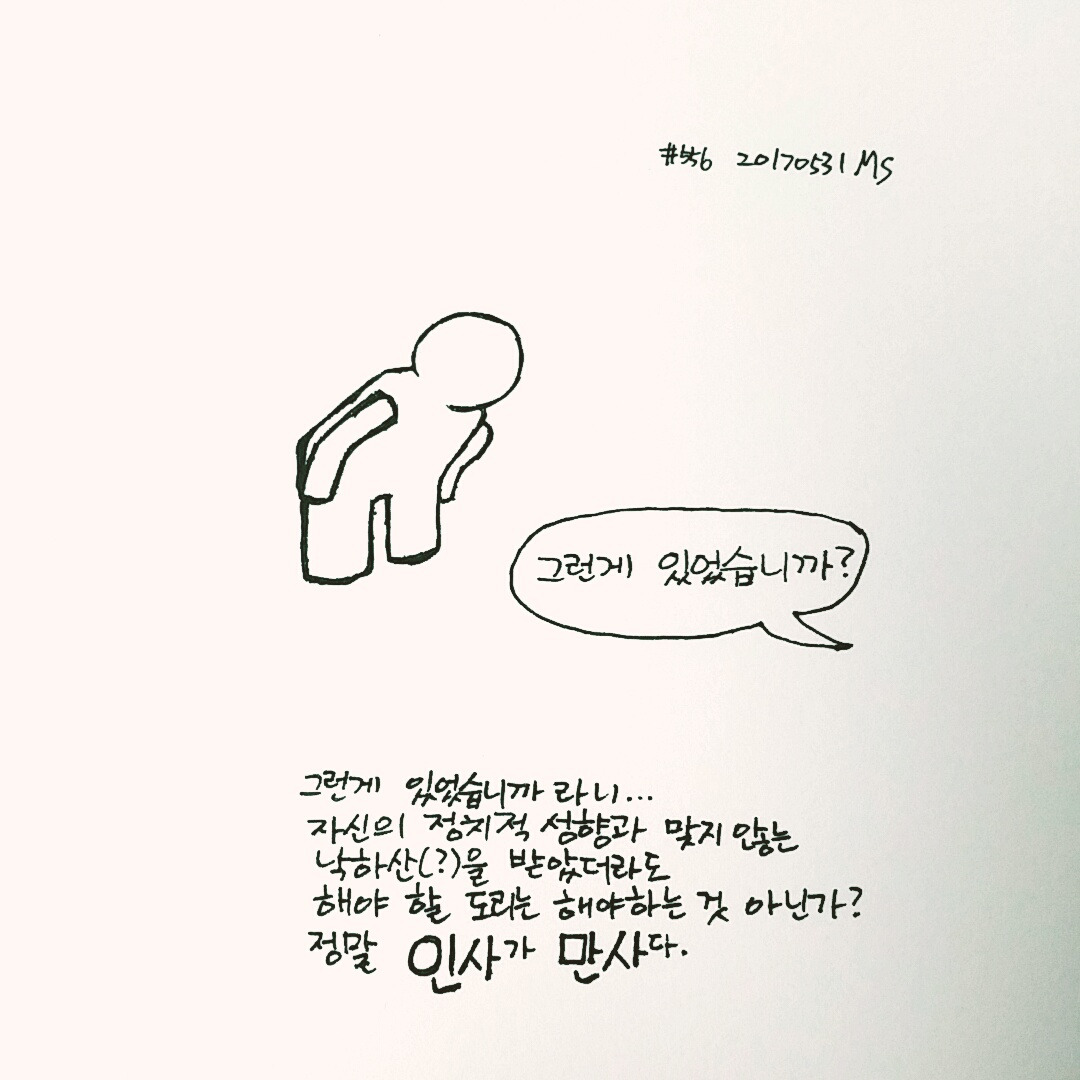 #556 20170531 MS
그런게 있었습니까?
그런게 있었습니까 라니...
자신의 정치적 성향과 맞지 않는
낙하산(?)을 받았더라도
해야 할 도리는 해야하는 것 아닌가?
정말 인사가 만사다.